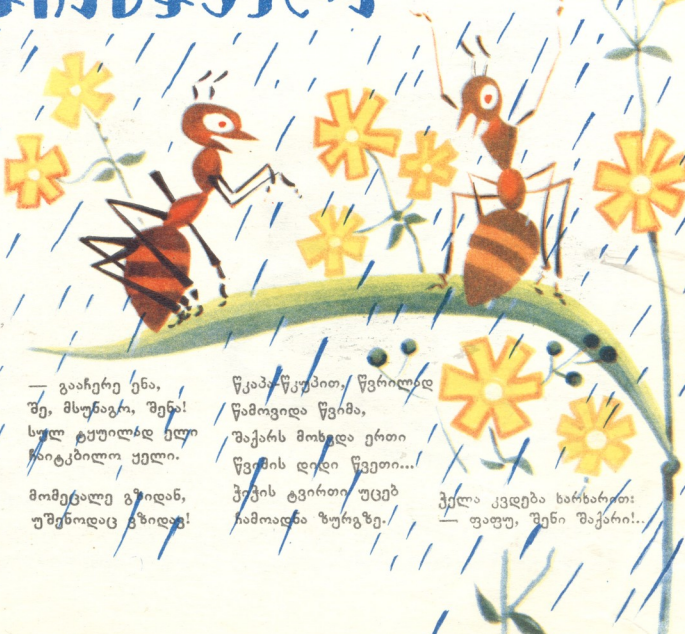 — გააჩერე ენა,
შე, მსუნაგო, შენა!
სულ ტყუილად ელი
ჩაიტკბილო ყელი.
მომეცალე გზიდან,
უშენოდაც ვზიდავ!
წკაპა-წკუპით, წვრილად
წამოვიდა წვიმა,
შაქარს მოხვდა ერთი
წვიმის დიდი წვეთი...
ჭიჭის ტვირთი უცებ
ჩამოადნა ზურგზე.
ჭელა კვდება ხარხარით:
— ფაფუ, შენი შაქარი!..